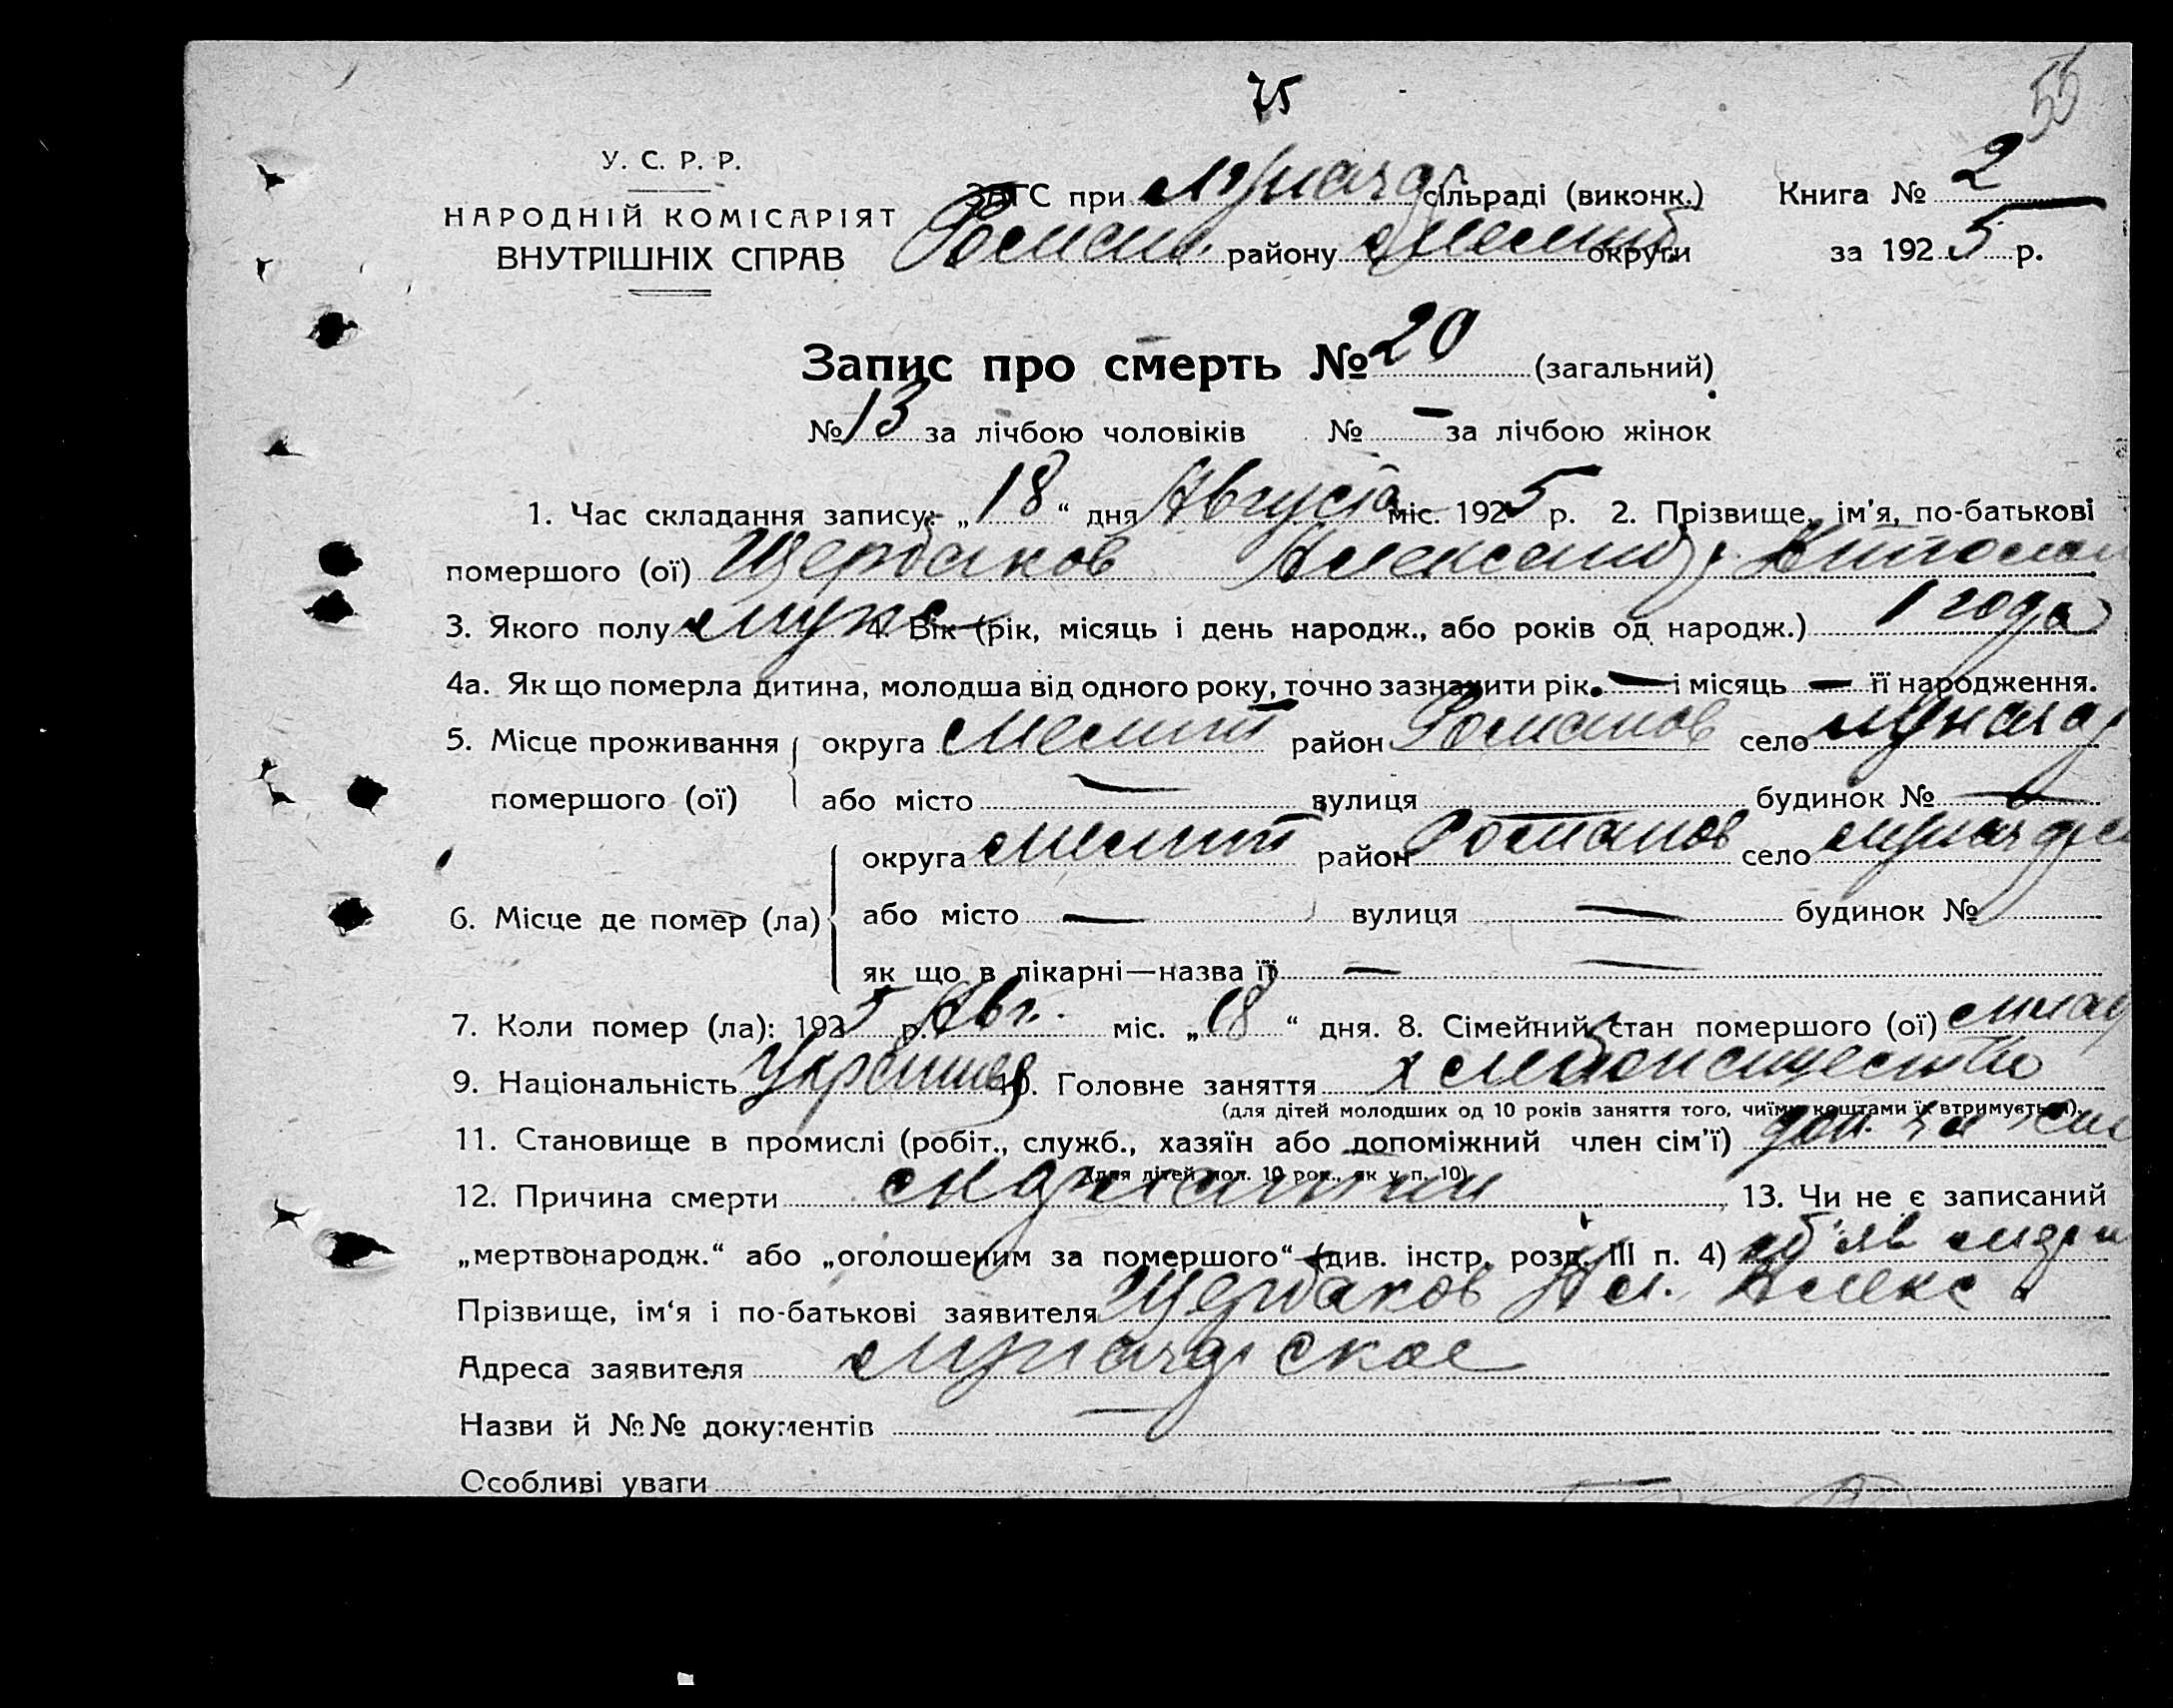 75
55
У. С. Р. Р.
НАРОДНІЙ КОМІСАРІЯТ
ВНУТРІШНІХ СПРАВ
ЗАГС при сільраді (виконк.) Книга № 2
Роман. району Мелит. округи за 1925 р.
Запис про смерть № 20 (загальний)
№ 13 за лічбою чоловіків № — за лічбою жінок
1. Час складання запису: „18“ дня Августа міс. 1925 р. 2. Прізвище, ім’я, по-батькові
помершого (ої) Щербаков Александр
3. Якого полу муж 4. Вік (рік, місяць і день народж., або років од народж.) 1 года
4а. Як що померла дитина, молодша від одного року, точно зазначити рік — і місяць — її народження.
5. Місце проживання округа Мелит район Романов село
помершого (ої) або місто — вулиця — будинок № —
6. Місце де помер (ла) округа Мелит район Романов село
або місто — вулиця — будинок №
як що в лікарні—назва її — —
7. Коли помер (ла): 1925 р. Авг. міс. „18“ дня. 8. Сімейний стан помершого (ої)
9. Національність 10. Головне заняття
(для дітей молодших од 10 років заняття того, чиїми коштами їх втримується).
11. Становище в промислі (робіт., служб., хазяїн або допоміжний член сім’ї)
(для дітей мол. 10 рок., як у п. 10)
12. Причина смерти 13. Чи не є записаний
„мертвонародж.“ або „оголошеним за помершого“ (див. інстр. розд. III п. 4)
Прізвище, ім‘я і по-батькові заявителя Щербаков Ал. Алекс
Адреса заявителя
Назви й №№ документів —
Особливі уваги